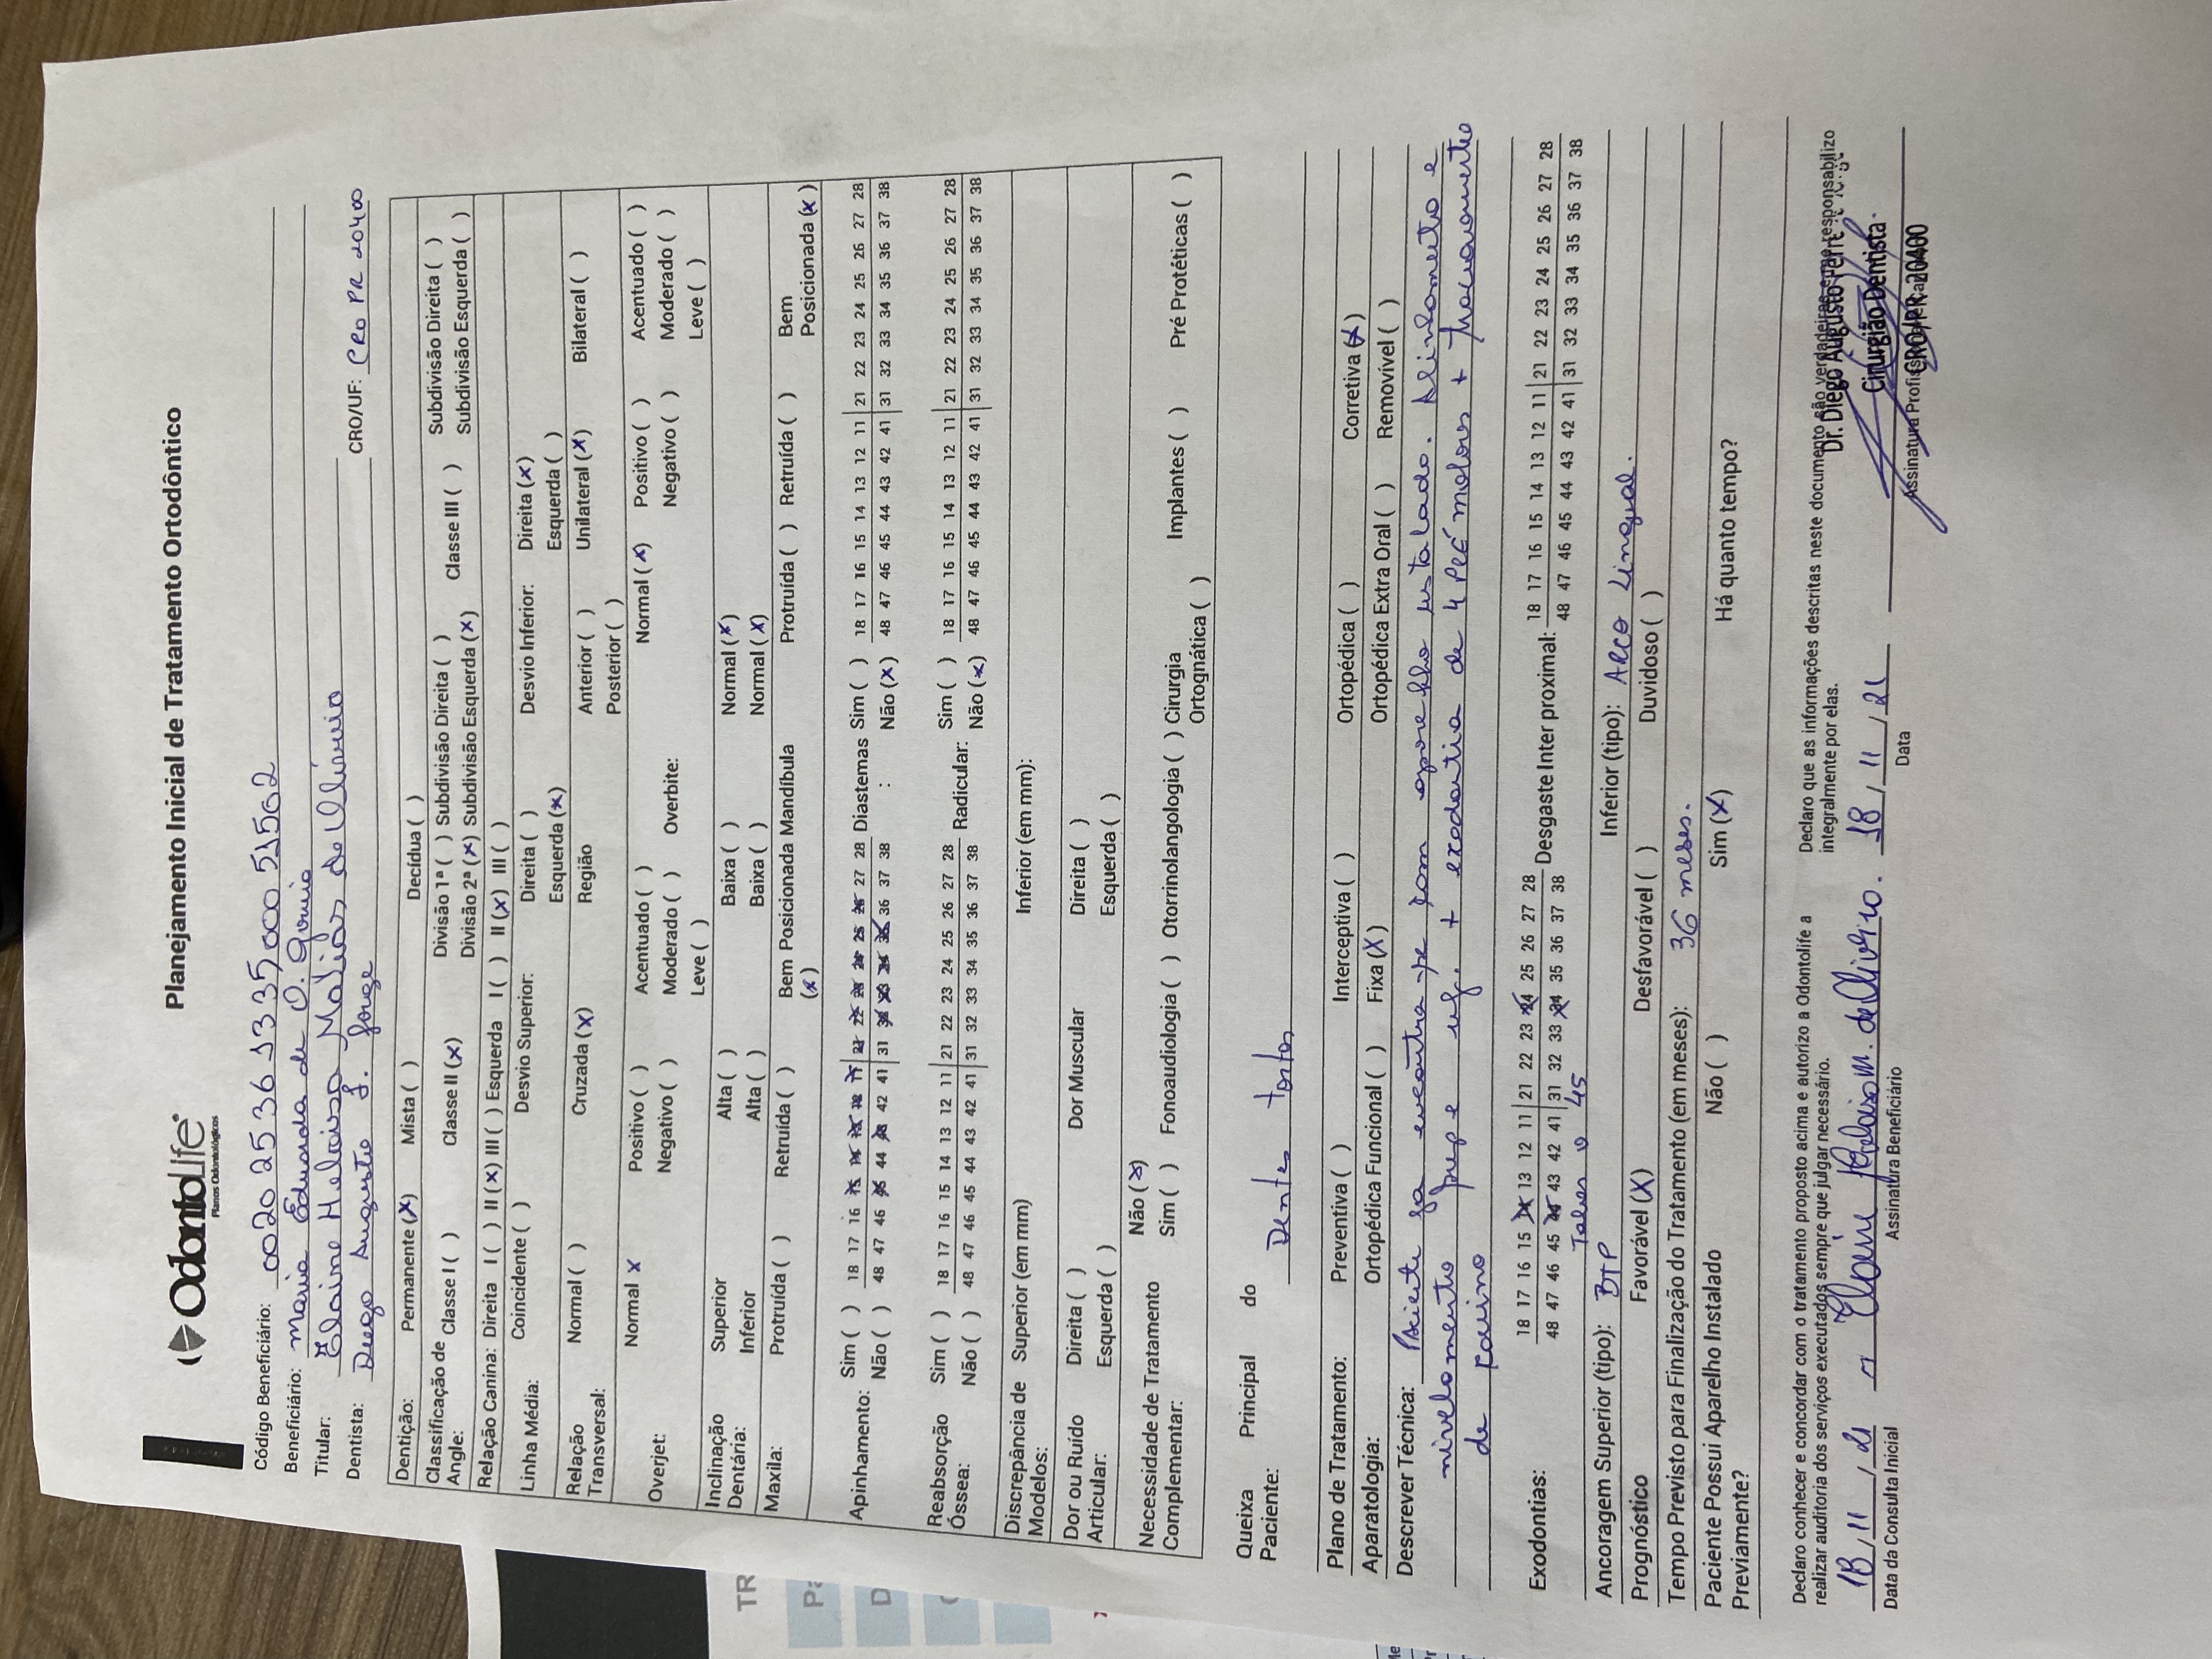 OdontoLife
Planos Odontológicos
Planejamento Inicial de Tratamento Ortodôntico
Código Beneficiário: 0020253613350005
Beneficiário: Maria Eduarda de O.
Titular: Elaine Heloisa Matias de Oliveira
Dentista: Diego Augusto F. CRO/UF: CRO PR 20400
Dentição: Permanente (X) Mista ( ) Decídua ( )
Classificação de Angle: Classe I ( ) Classe II (X) Divisão 1ª ( ) Subdivisão Direita ( ) Classe III ( ) Subdivisão Direita ( )
Divisão 2ª (X) Subdivisão Esquerda (X) Subdivisão Esquerda ( )
Relação Canina: Direita I ( ) II (X) III ( ) Esquerda I ( ) II (X) III ( )
Linha Média: Coincidente ( ) Desvio Superior: Direita ( ) Desvio Inferior: Direita (X)
Esquerda (X) Esquerda ( )
Relação Transversal: Normal ( ) Cruzada (X) Região Anterior ( ) Unilateral (X) Bilateral ( )
Posterior ( )
Overjet: Normal X Positivo ( ) Acentuado ( ) Overbite: Normal (X) Positivo ( ) Acentuado ( )
Negativo ( ) Moderado ( ) Negativo ( ) Moderado ( )
Leve ( ) Leve ( )
Inclinação Dentária: Superior Alta ( ) Baixa ( ) Normal (X)
Inferior Alta ( ) Baixa ( ) Normal (X)
Maxila: Protruída ( ) Retruída ( ) Bem Posicionada (X) Mandíbula Protruída ( ) Retruída ( ) Bem Posicionada (X)
Apinhamento: Sim ( ) 18 17 16 15 14 13 12 11 21 22 23 24 25 26 27 28 Diastemas Sim ( ) 18 17 16 15 14 13 12 11 21 22 23 24 25 26 27 28
Não ( ) 48 47 46 45 44 43 42 41 31 32 33 34 35 36 37 38 : Não (X) 48 47 46 45 44 43 42 41 31 32 33 34 35 36 37 38
Reabsorção Óssea: Sim ( ) 18 17 16 15 14 13 12 11 21 22 23 24 25 26 27 28 Radicular: Sim ( ) 18 17 16 15 14 13 12 11 21 22 23 24 25 26 27 28
Não ( ) 48 47 46 45 44 43 42 41 31 32 33 34 35 36 37 38 Não (X) 48 47 46 45 44 43 42 41 31 32 33 34 35 36 37 38
Discrepância de Modelos: Superior (em mm) Inferior (em mm):
Dor ou Ruído Articular: Direita ( ) Dor Muscular Direita ( )
Esquerda ( ) Esquerda ( )
Necessidade de Tratamento Complementar: Não (X)
Sim ( ) Fonoaudiologia ( ) Otorrinolangologia ( ) Cirurgia Ortognática ( ) Implantes ( ) Pré Protéticas ( )
Queixa Principal do Paciente: Dentes tortos
Plano de Tratamento: Preventiva ( ) Interceptiva ( ) Ortopédica ( ) Corretiva (X)
Aparatologia: Ortopédica Funcional ( ) Fixa (X) Ortopédica Extra Oral ( ) Removível ( )
Descrever Técnica: Paciente ja encontra-se com aparelho instalado. Alinhamento e
nivelamento + exodontia de 4 PRÉ molares + tracionamento
de canino
Exodontias: 18 17 16 15 14 13 12 11 21 22 23 24 25 26 27 28 Desgaste Inter proximal: 18 17 16 15 14 13 12 11 21 22 23 24 25 26 27 28
48 47 46 45 44 43 42 41 31 32 33 34 35 36 37 38 48 47 46 45 44 43 42 41 31 32 33 34 35 36 37 38
Talvez o 45
Ancoragem Superior (tipo): BTP Inferior (tipo): Arco Lingual.
Prognóstico Favorável (X) Desfavorável ( ) Duvidoso ( )
Tempo Previsto para Finalização do Tratamento (em meses): 36 meses.
Paciente Possui Aparelho Instalado Previamente? Não ( ) Sim (X) Há quanto tempo?
Declaro conhecer e concordar com o tratamento proposto acima e autorizo a Odontolife a
realizar auditoria dos serviços executados sempre que julgar necessário.
Declaro que as informações descritas neste documento são verdadeiras e me responsabilizo
integralmente por elas.
18/11/21 Elaine Heloisa M. de Oliveira. 18/11/21
Data da Consulta Inicial Assinatura Beneficiário Data Assinatura Profissional
Dr. Diego Augusto
Cirurgião Dentista
CRO/PR 20400